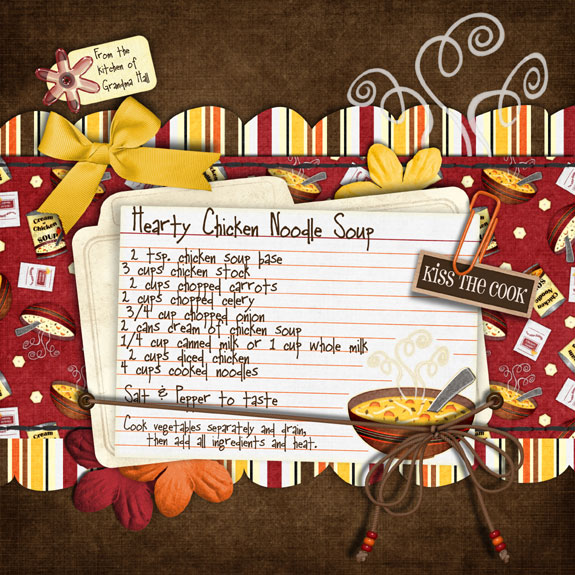 From the
kitchen of
Grandma Hall
Hearty Chicken Noodle Soup
2 tsp. chicken soup base
3 cups chicken stock
2 cups chopped carrots
2 cups chopped celery
3/4 cup chopped onion
2 cans cream of chicken soup
1/4 cup canned milk or 1 cup whole milk
2 cups diced chicken
4 cups cooked noodles
Salt & Pepper to taste
Cook vegetables separately and drain,
then add all ingredients and heat.
KISS THE COOK
Cream of
Chicken
SOUP